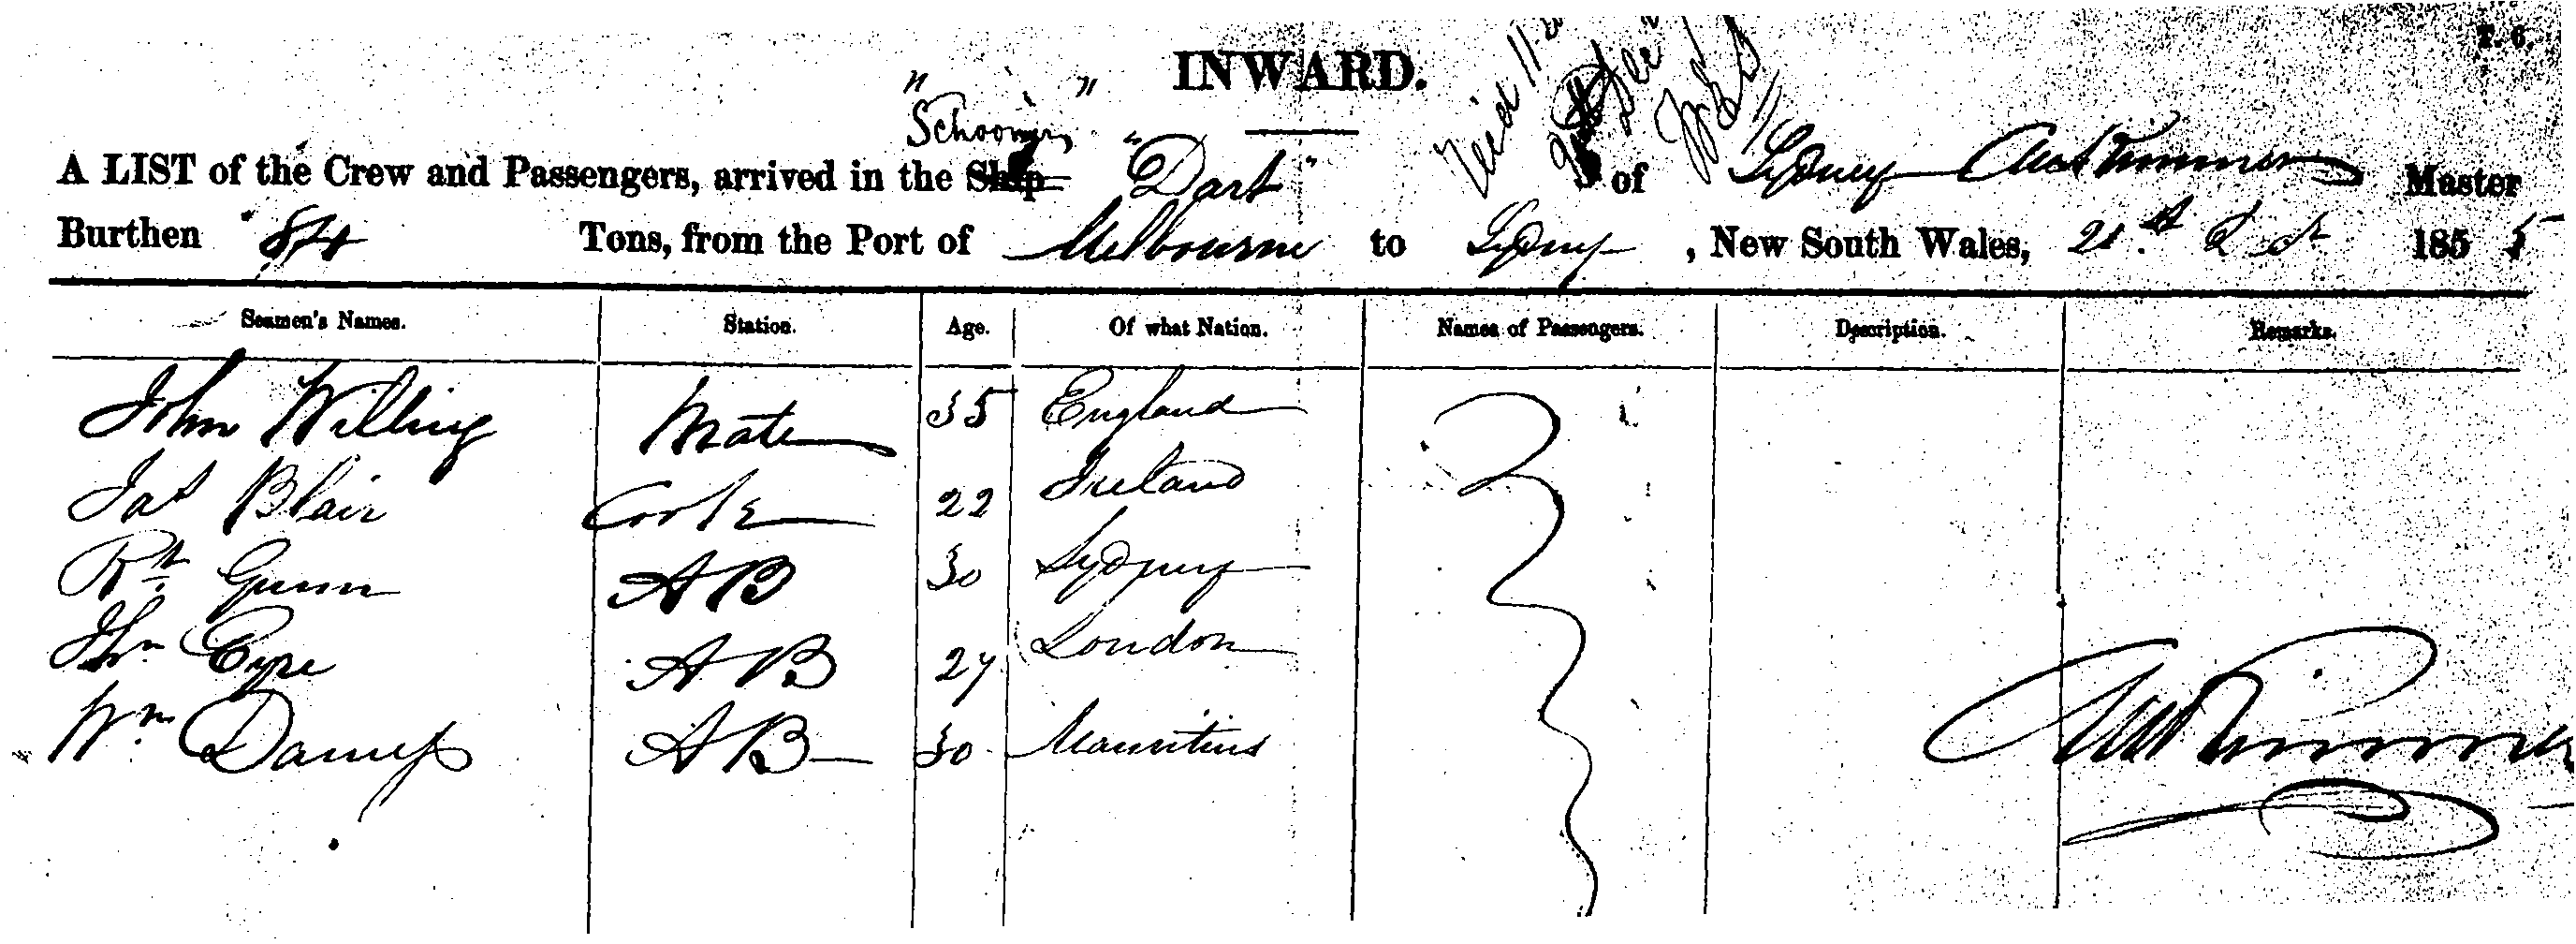 T. 6.
INWARD.
" Schooner "
A LIST of the Crew and Passengers, arrived in the Ship "Dart" of Sydney Master
Burthen 84 Tons, from the Port of Melbourne to Sydney, New South Wales, 21st 1855
Seamen's Names. Station. Age. Of what Nation. Names of Passengers. Description. Remarks.
John Willing Mate 35 England
Jas Blair Cook 22 Ireland
Rt Gunn AB 30 Sydney
Jhn Eyre AB 27 London
Wm AB 30 Mauritius